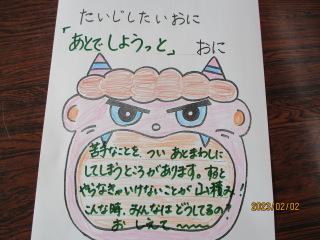 たいじしたいおに
「あとでしようっと」 おに
苦手なことを、つい あとまわしに
してしまうどろがあります。すると
やらなきゃいけないことが 山積み!
こんな時、みんなは どうしてるの?
おしえて〜〜〜
2023/02/02